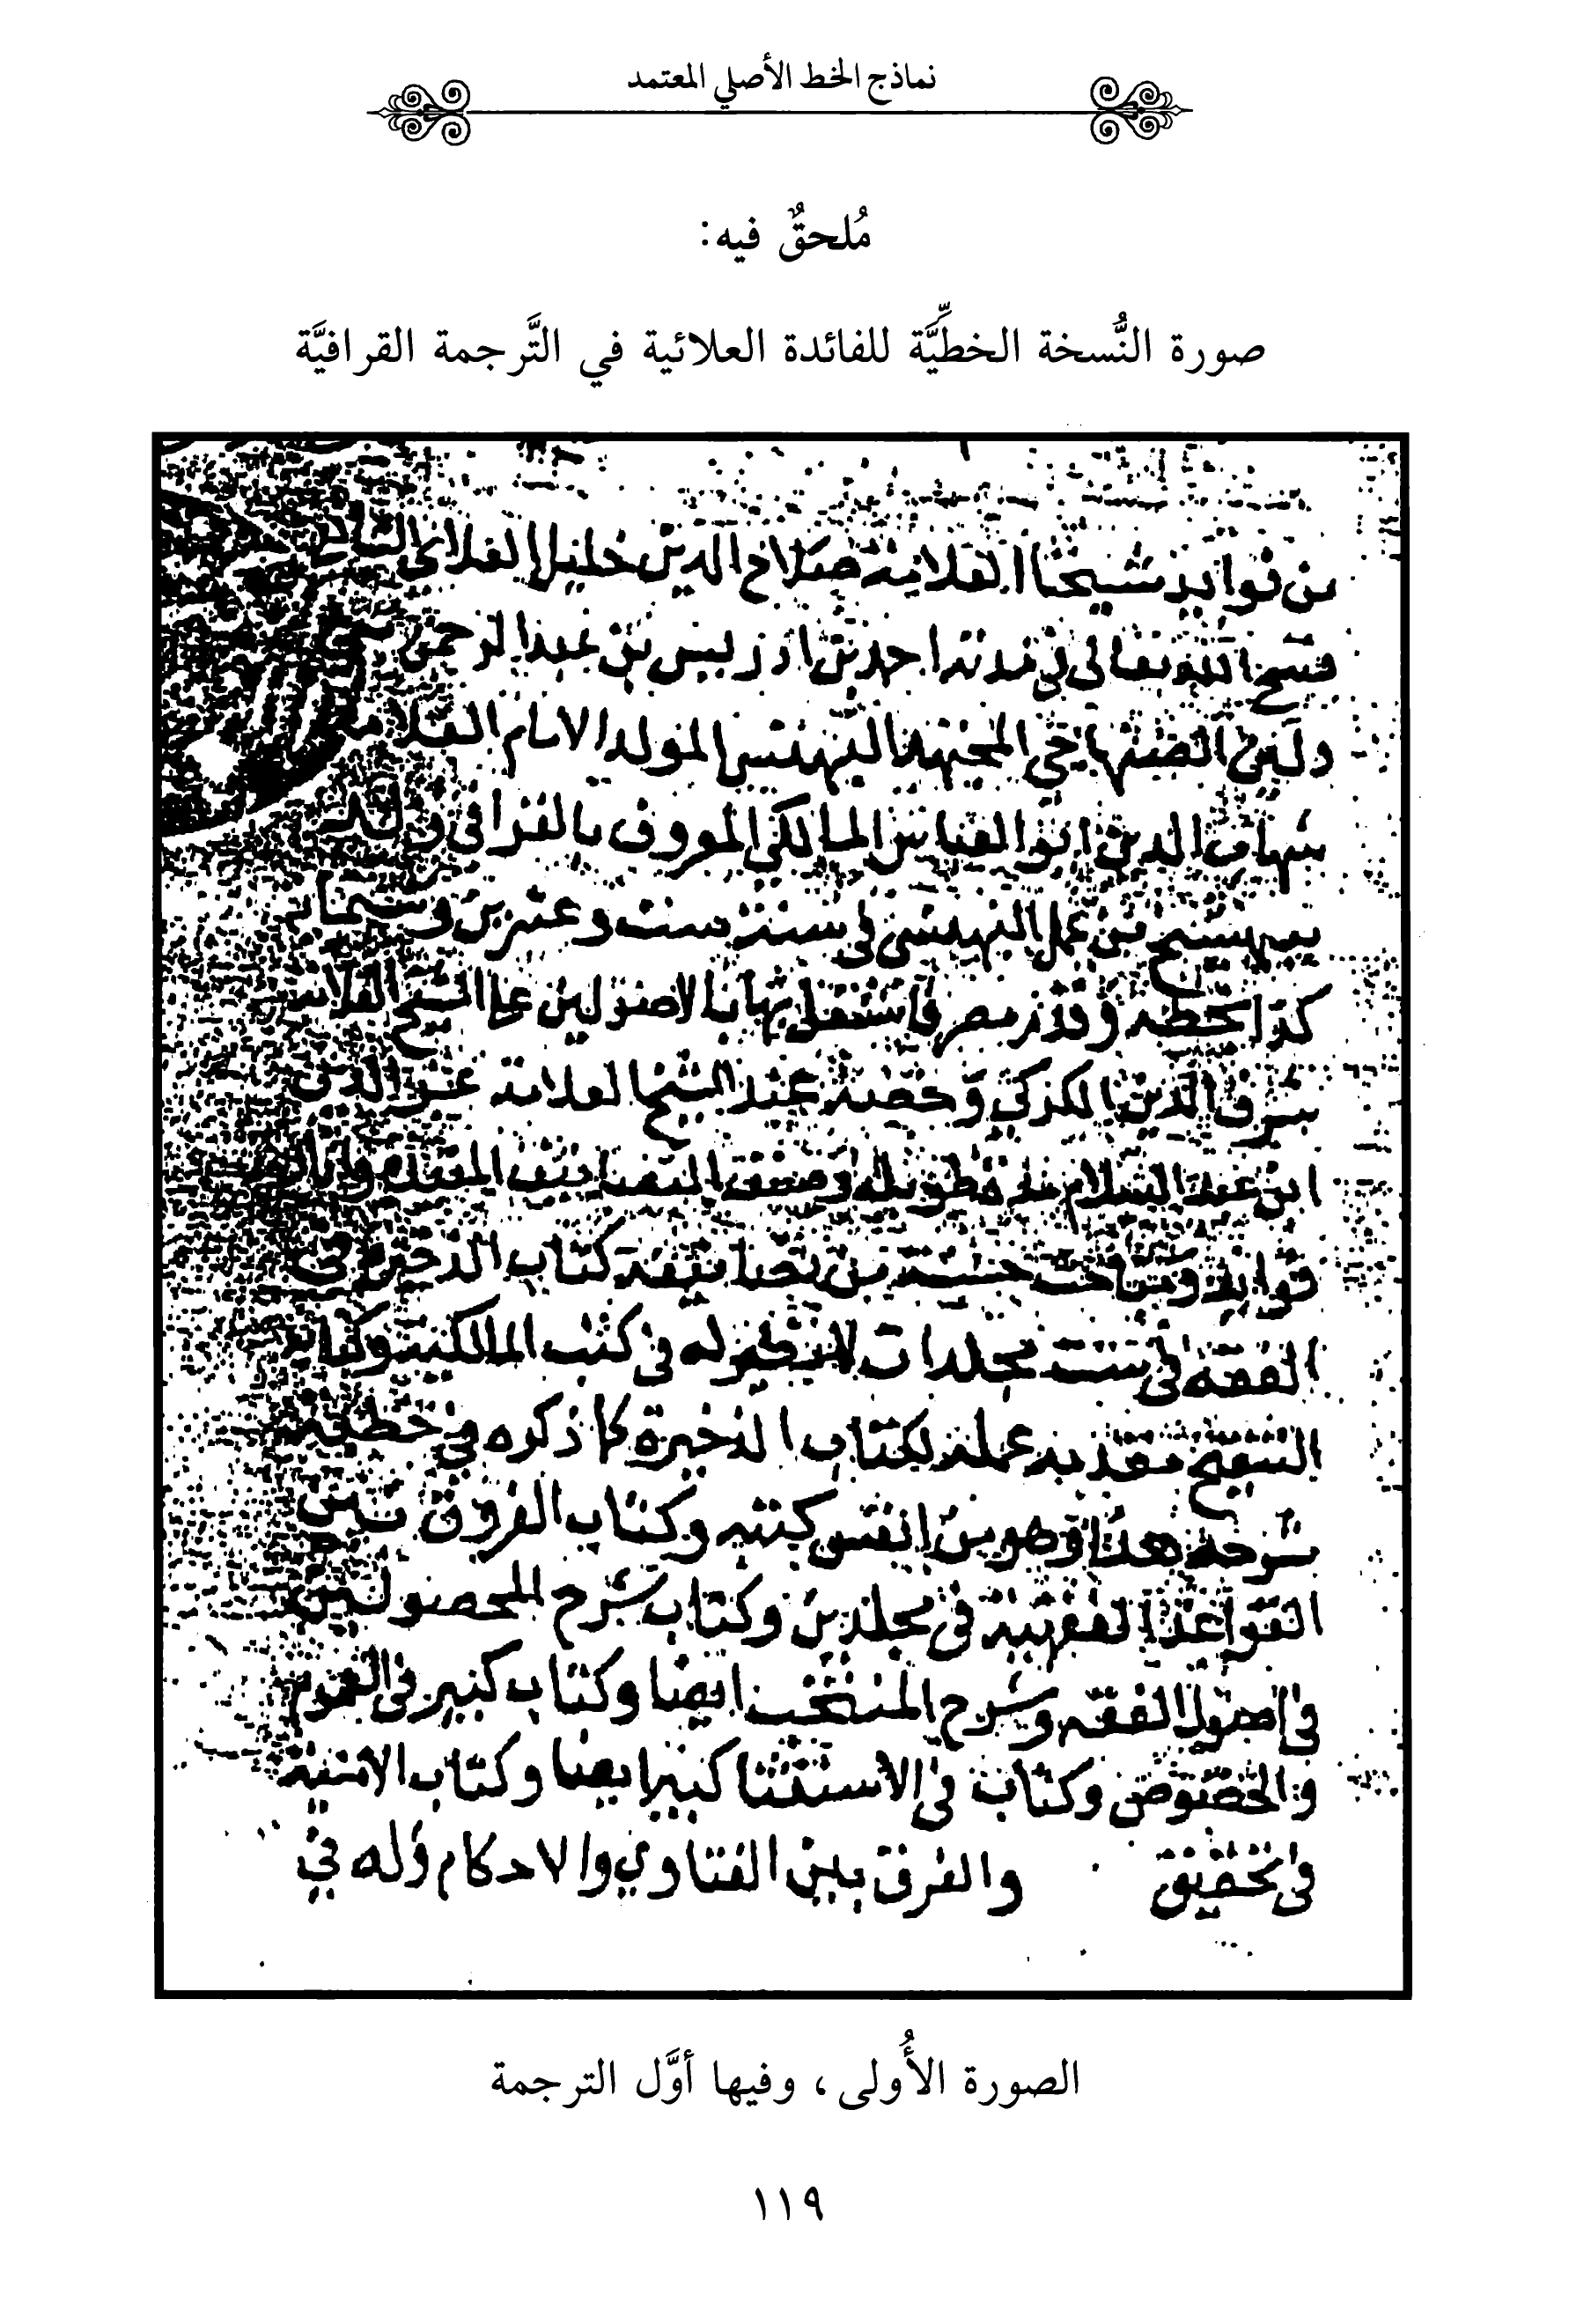 نماذج الخط الأصلي المعتمد
مُلحقٌ فيه:
صورة النُّسخة الخطِّيَّة للفائدة العلائية في التَّرجمة القرافيَّة
من فوايد شيخنا العلامة صلاح الدين خليل العلائي
فسح الله تعالى في مدته احمد بن ادريس بن عبد الرحمن
الصنهاجي البهنسي المولد الامام العلامه
شهاب الدين ابو العباس المالكي المعروف بالقرافي ولد
من عمل البهنسى في سنة ست وعشرين وستمائه
كذا بخطه وقدم مصر فاشتغل بها بالاصولين على الشيخ العلامه
شرف الدين الكركي وحضر عند الشيخ العلامة عز الدين
ابن عبد السلام مدة طويله وصنف التصانيف المفيده
فوايد ومباحث حسنة من تصانيفه كتاب الذخيرة في
الفقه في ست مجلدات لا نظير له في كتب المالكية وكتاب
التنقيح مقدمة عمله لكتاب الذخيرة كما ذكره في خطبته
شرحه هذا وهو من انفس كتبه وكتاب الفروق بين
القواعد الفقهية في مجلدين وكتاب شرح المحصول
في اصول الفقه وشرح المنتخب ايضا وكتاب كبير في العموم
والخصوص وكتاب في الاستثنا كبير ايضا وكتاب الامنية
في تحقيق والفرق بين الفتاوي والاحكام وله في
الصورة الأُولى، وفيها أوَّل الترجمة
١١٩